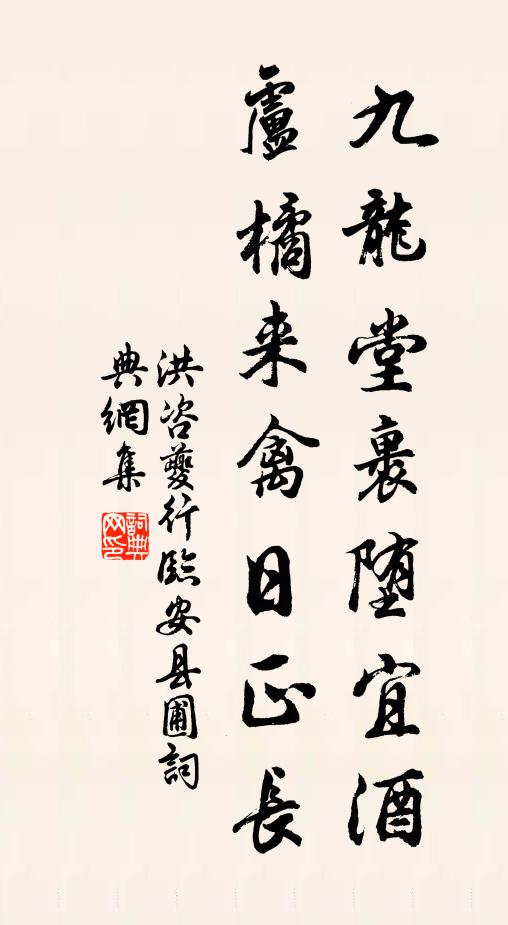 九龍堂裏堕宜酒
盧橘来禽日正長
洪咨夔行臨安县圃詞
典網集
詞典網印